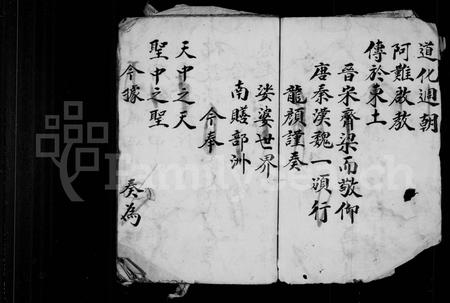 道化週朝
阿難啟教
傳於東土
晉宋齊梁而敬仰
唐秦漢魏一須行
龍顏謹奏
娑婆世界
南贍部洲
今奉
天中之天
聖中之聖
今據 奏為
FamilySearch